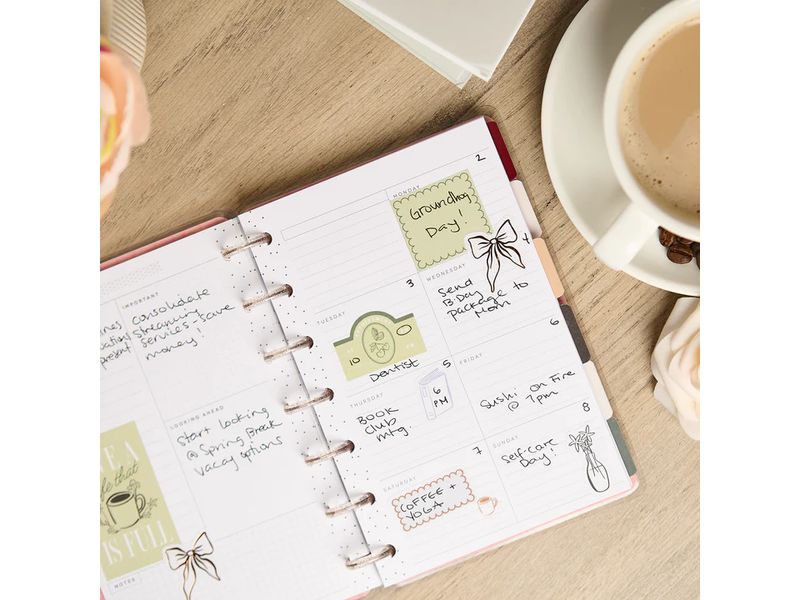 IMPORTANT
consolidate
streaming
services - save
money!
present
LOOKING AHEAD
Start looking
@ Spring Break
vacay options
IS FULL
NOTES
MONDAY
2
Groundhog
Day!
TUESDAY
3
10
0
Dentist
WEDNESDAY
4
Send
B-Day
package to
Mom
THURSDAY
5
Book
Club
mtg.
6
PM
FRIDAY
6
Sushi on Fire
@ 7pm
SATURDAY
7
COFFEE +
YOGA
SUNDAY
8
Self-care
Day!